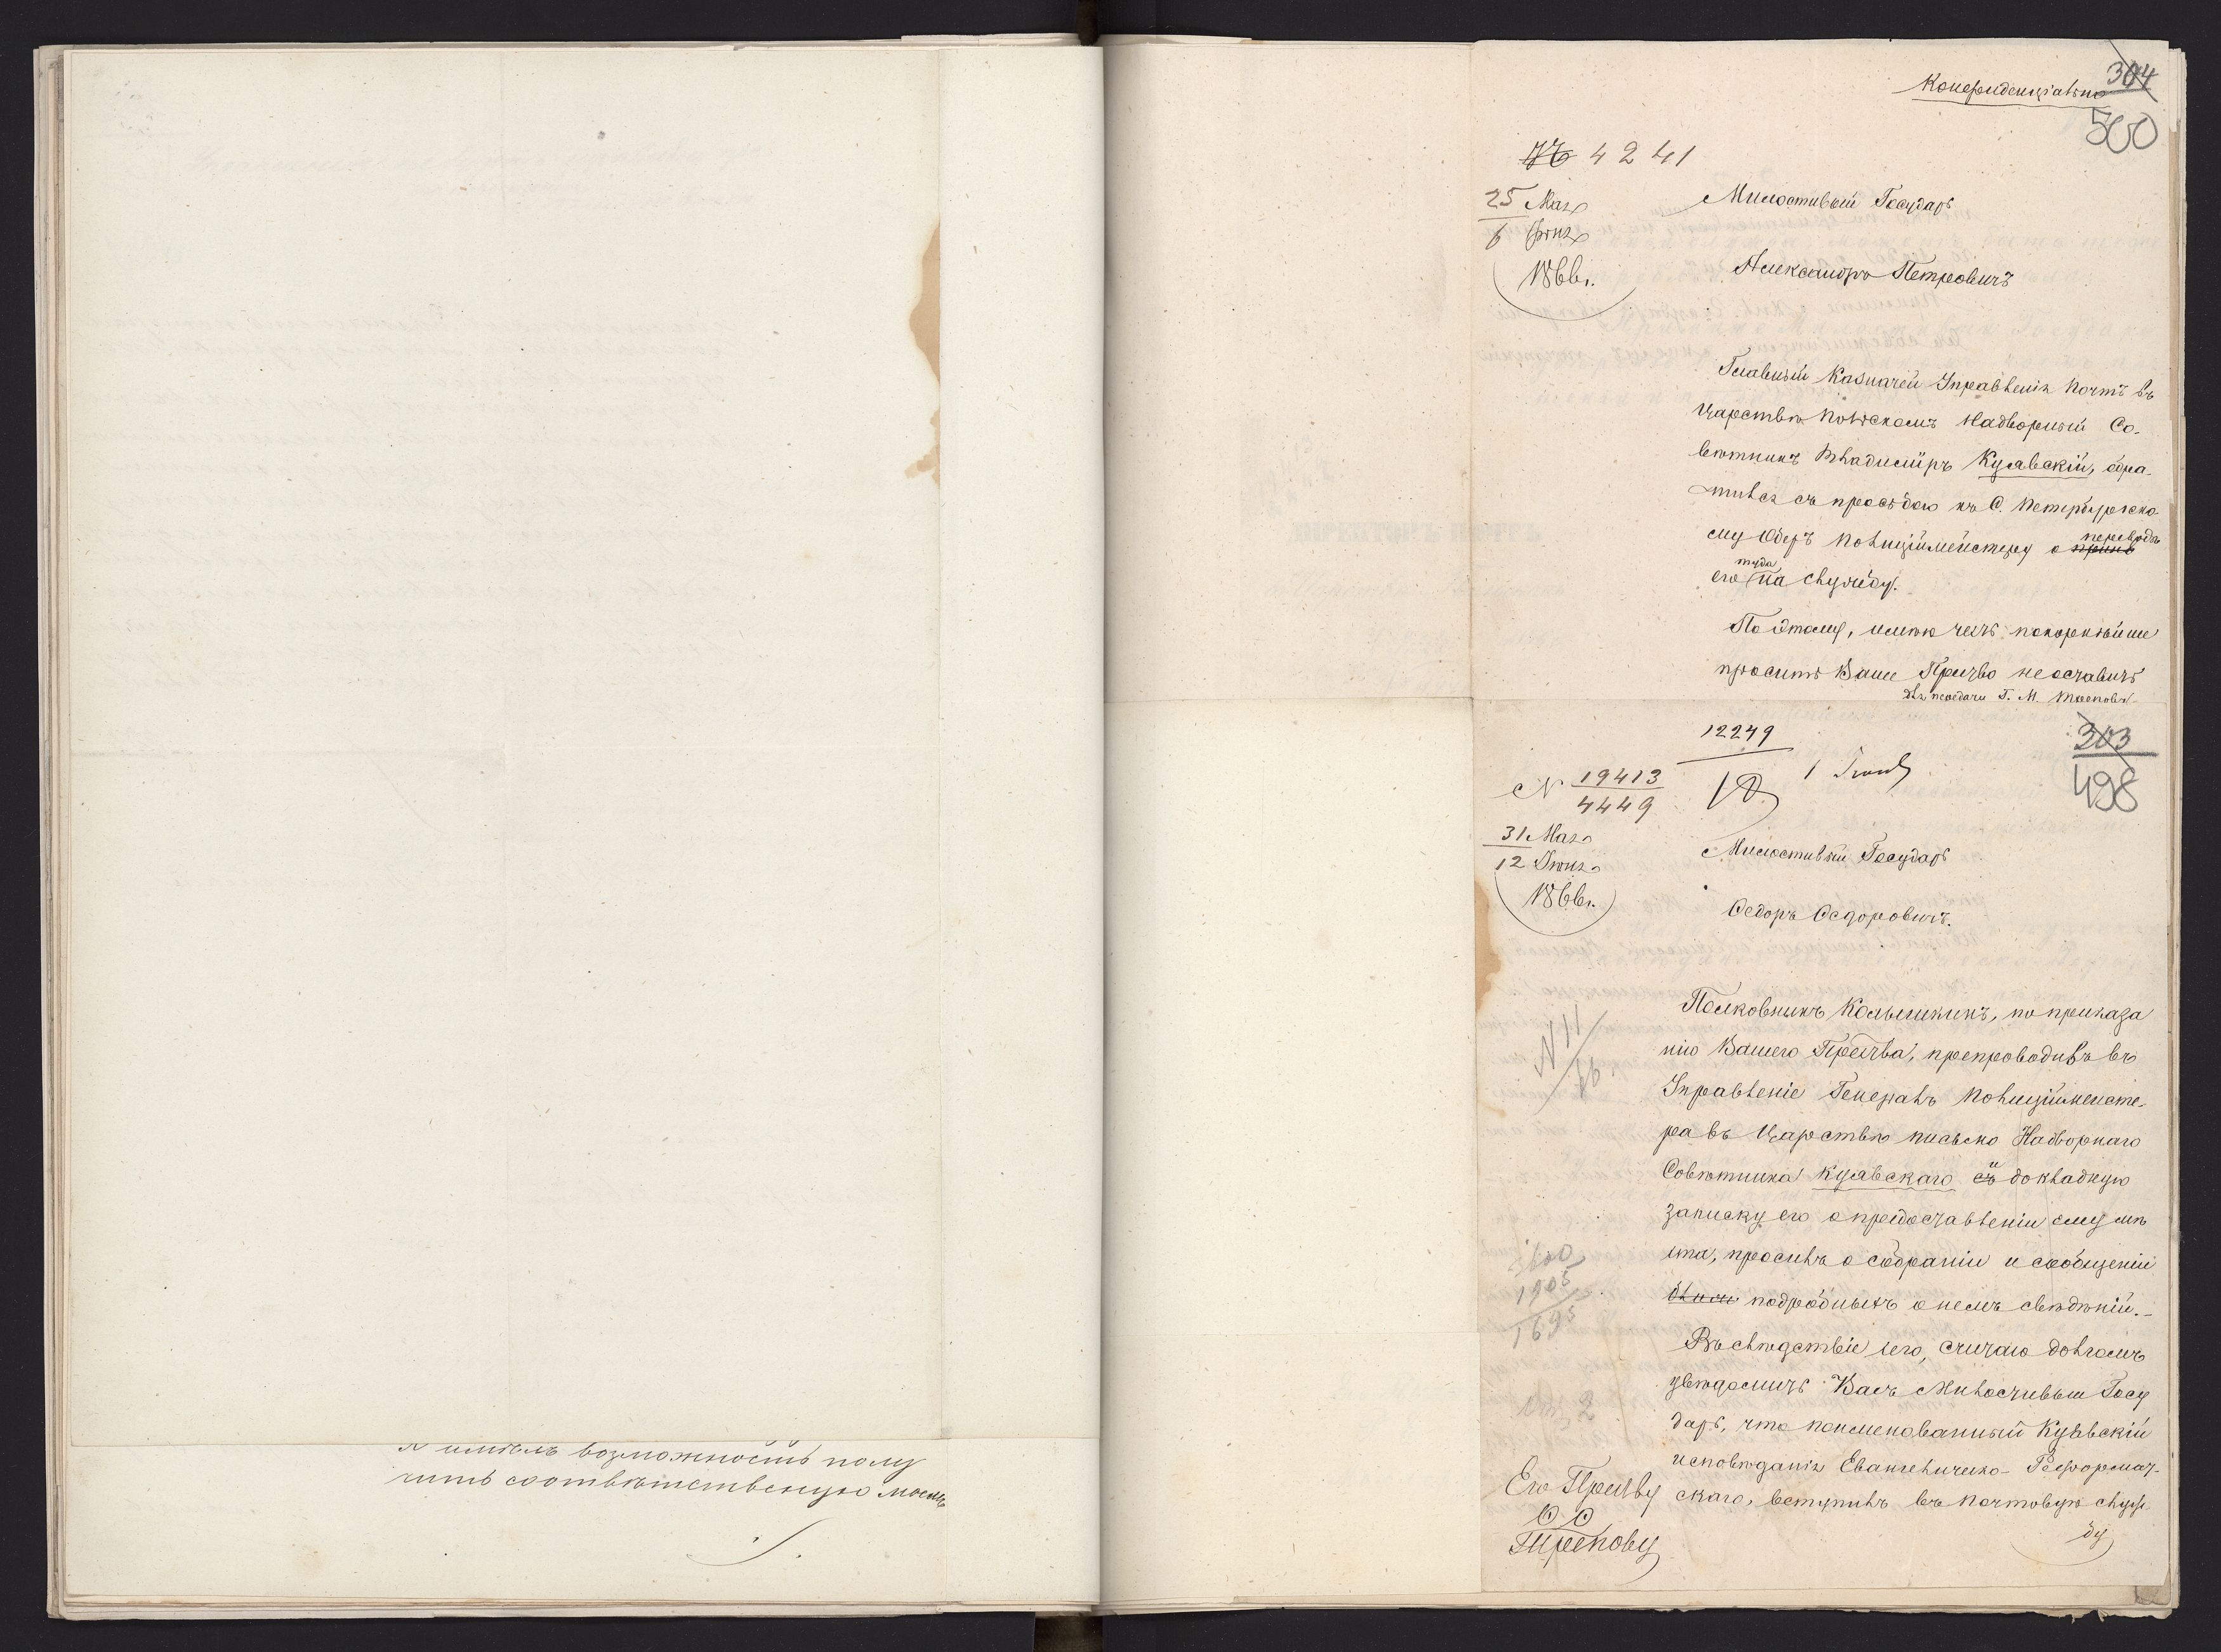 я имѣлъ возможность полу
чить соотвѣтственную моему
Конфиденціально
304
500
№ 4241
25 Мая
6 Іюня
1866 г.
Милостивый Государь
Александръ Петровичъ
Главный Казначей Управленія Почтъ въ
Царствѣ Польскомъ Надворный Со-
вѣтникъ Владиміръ Кулавскій, обра-
тился съ просьбою къ С. Петербургско-
му Оберъ Полиціймейстеру о переводѣ
его туда на службу.
По этому, имѣю честь покорнѣйше
просить Ваше Пр-ство не оставить
12249
1 Іюня
303
498
№ 19413
4449
31 Мая
12 Іюня
1866 г.
Милостивый Государь
Ѳедоръ Ѳедоровичъ.
Полковникъ Колышкинъ, по приказа
нію Вашего Пр-ства, препроводивъ въ
Управленіе Генералъ Полиціймейсте-
ра въ Царствѣ письмо Надворнаго
Совѣтника Кулавскаго и докладную
записку его о предоставленіи ему мѣ
ста, просилъ о собраніи и сообщеніи
подробныхъ о немъ свѣдѣній.-
Въ слѣдствіе сего, считаю долгомъ
увѣдомить Васъ Милостивый Госу
дарь, что поименованный Кулавскій
исповѣданія Евангелическо- Реформат-
скаго, вступилъ въ почтовую служ-
бу
Его Пр-ству
Ѳ. Ѳ.
Трепову
N 11
1905
1695